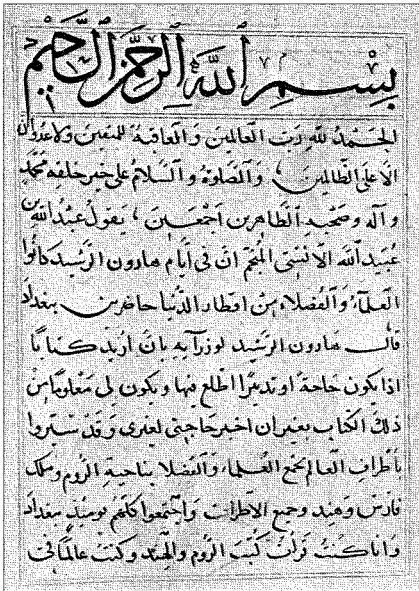 بسم الله الرحمن الرحيم
الحمد لله رب العالمين والعاقبة للمتقين ولا عدوان
الا على الظالمين والصلوة والسلام على خير خلقه محمد
وآله وصحبه الطاهرين اجمعين يقول عبد الله بن
عبيد الله المنجم ان في أيام هارون الرشيد كانوا
العلماء والفضلاء من اقطار الدنيا حاضرين ببغداد
قال هارون الرشيد لوزرآيه بان اريد كتابا
اذا يكون حاجة او تدبيرا اطلع فيها ويكون لى معلوما من
ذلك الكتاب بغير ان اخبر حاجتى لغيرى وقد سيروا
باطراف العالم لجمع العلماء والفضلا بناحية الروم وملك
فارس وهند وجميع الاطراف واجتمعوا كلهم ببغداد
وانا كنت قرأت كتب الروم والهند وكنت عالما فى